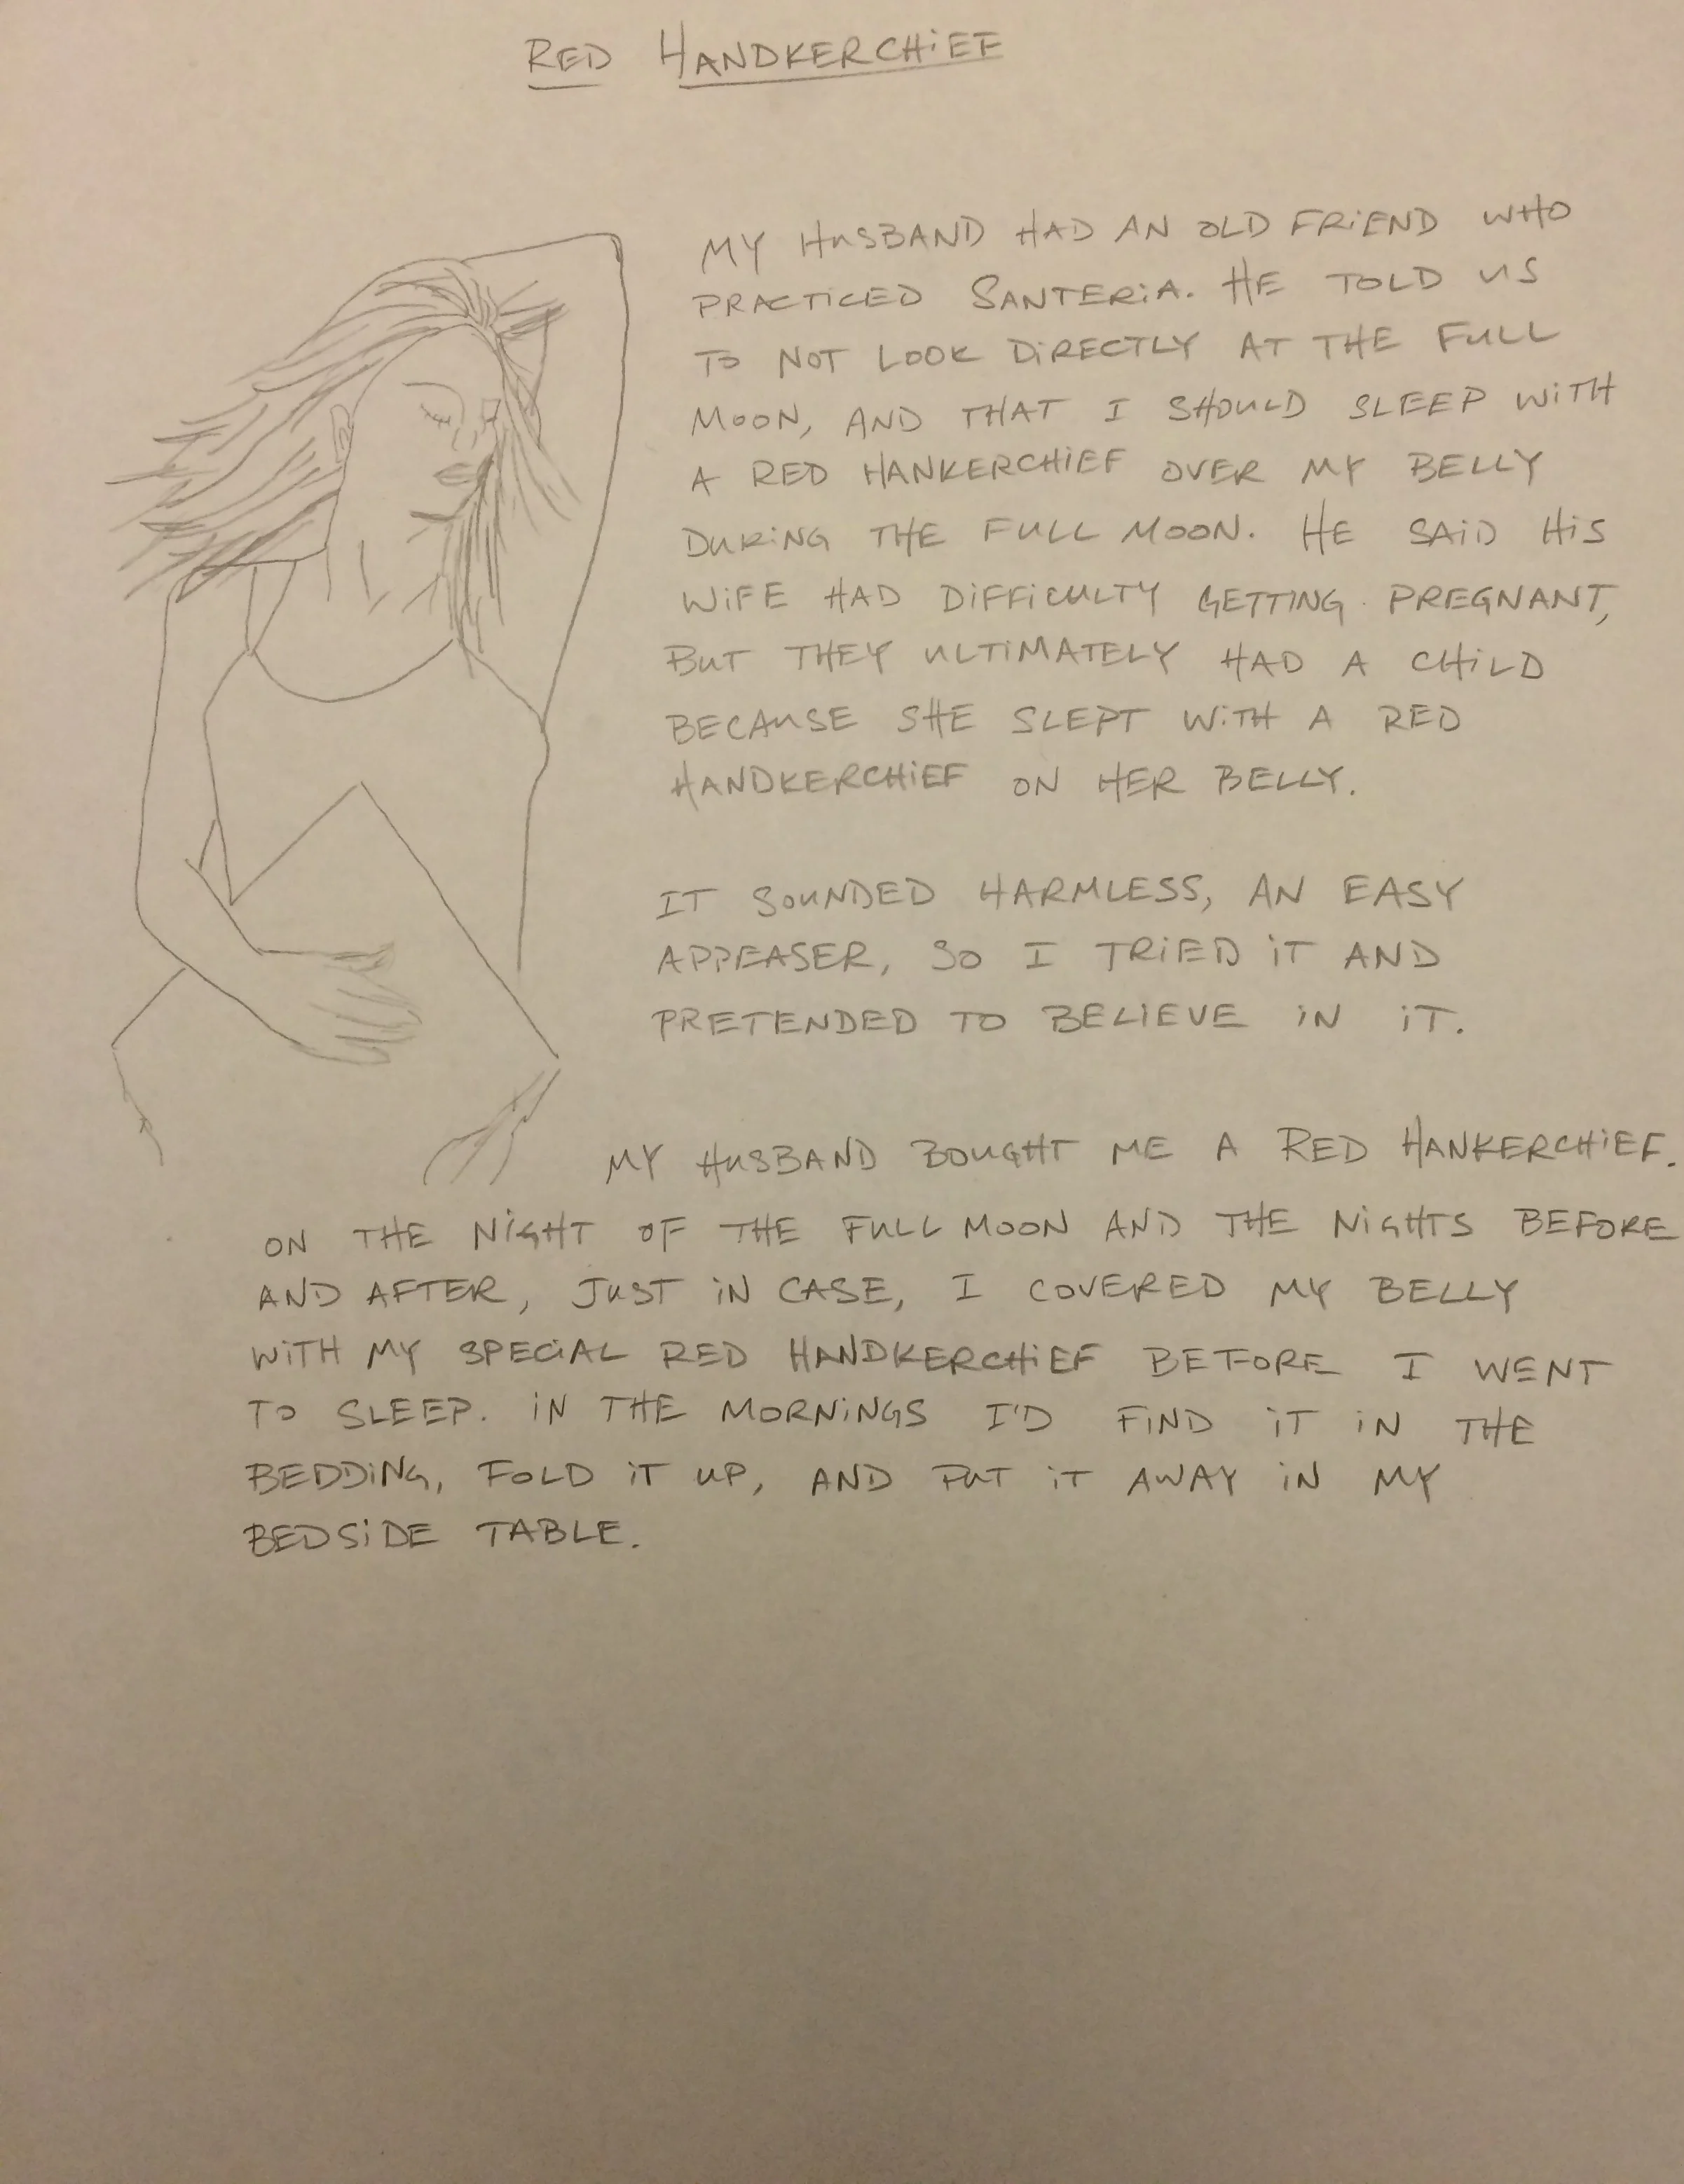 RED HANDKERCHIEF
MY HUSBAND HAD AN OLD FRIEND WHO
PRACTICED SANTERIA. HE TOLD US
TO NOT LOOK DIRECTLY AT THE FULL
MOON, AND THAT I SHOULD SLEEP WITH
A RED HANKERCHIEF OVER MY BELLY
DURING THE FULL MOON. HE SAID HIS
WIFE HAD DIFFICULTY GETTING PREGNANT,
BUT THEY ULTIMATELY HAD A CHILD
BECAUSE SHE SLEPT WITH A RED
HANDKERCHIEF ON HER BELLY.
IT SOUNDED HARMLESS, AN EASY
APPEASER, SO I TRIED IT AND
PRETENDED TO BELIEVE IN IT.
MY HUSBAND BOUGHT ME A RED HANKERCHIEF.
ON THE NIGHT OF THE FULL MOON AND THE NIGHTS BEFORE
AND AFTER, JUST IN CASE, I COVERED MY BELLY
WITH MY SPECIAL RED HANDKERCHIEF BEFORE I WENT
TO SLEEP. IN THE MORNINGS I'D FIND IT IN THE
BEDDING, FOLD IT UP, AND PUT IT AWAY IN MY
BEDSIDE TABLE.